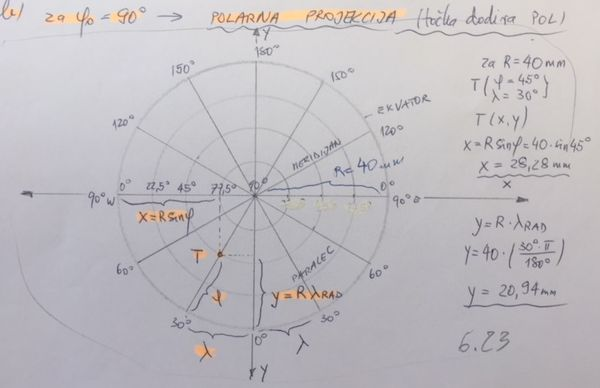 b) za φ₀ = 90° → POLARNA PROJEKCIJA (točka dodira POL)
Y
180°
150°
150°
120°
EKVATOR
120°
MERIDIJAN
R = 40 mm
90°W
0°
22,5°
45°
77,5°
90°
0°
90°E
X
X=Rsinφ
T
φ
y=RλRAD
PARALEL
60°
60°
30°
0°
30°
λ
λ
Y
za R=40mm
T(φ=45°
λ=30°)
T(x,y)
x=Rsinφ=40·sin45°
x = 28,28 mm
y=R·λRAD
y=40·(30°·π/180°)
y = 20,94mm
6.23